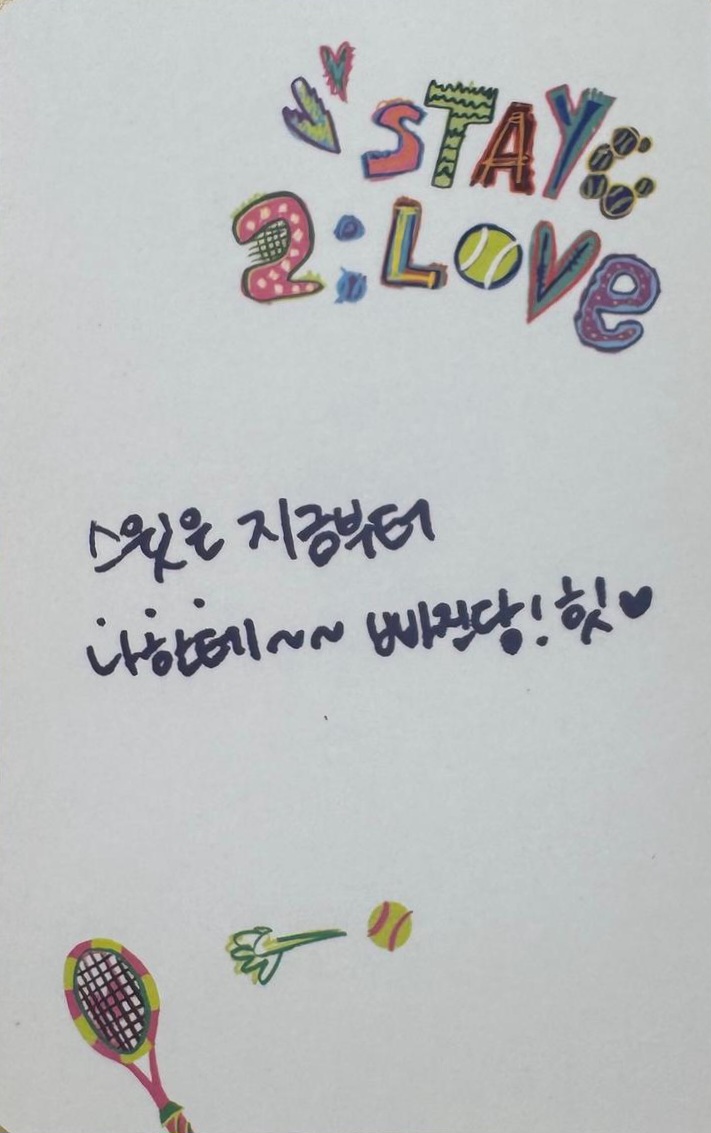 STAYC
2:LOVe
스윗은 지금부터
나한테~~ 빠졌당! 힛♥